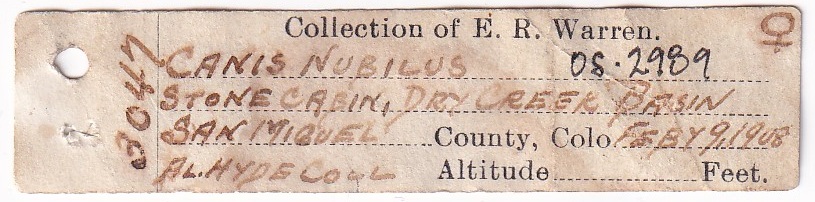 Collection of E. R. Warren. ♀
3047
CANIS NUBILUS OS·2989
STONE CABIN, DRY CREEK BASIN
SAN MIGUEL County, Colo FEBY 9, 1908
AL. HYDE COLL Altitude Feet.